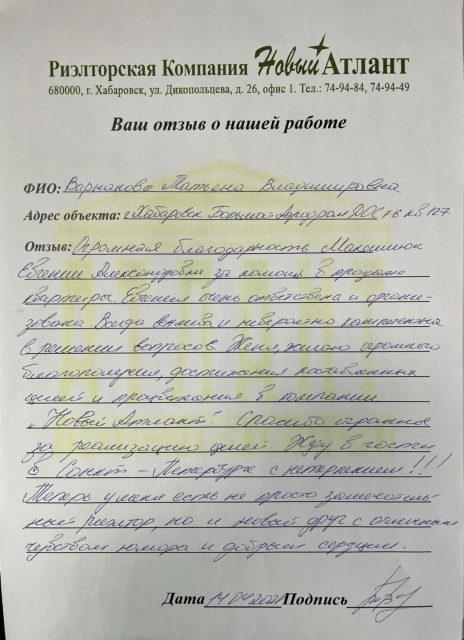 Риэлторская Компания Новый Атлант
680000, г. Хабаровск, ул. Дикопольцева, д. 26, офис 1. Тел.: 74-94-84, 74-94-49
Ваш отзыв о нашей работе
ФИО: Татьяна Владимировна
Адрес объекта: г. Хабаровск Большой Аэродром ДОС 76 кв 127
Отзыв: Огромная благодарность Максимюк
Евгении Александровне за помощь в продаже
квартиры. Евгения очень ответственна и органи-
зована. Всегда вежлива и невероятно компетентна
в решении вопросов. Женя, желаю огромного
благополучия, достижения поставленных
целей и процветания в компании
"Новый Атлант". Спасибо огромное
за реализацию целей. Жду в гости
в Санкт-Петербурге с нетерпением!!!
Теперь у меня есть не просто замечатель-
ный риэлтор, но и новый друг с отличным
чувством юмора и добрым сердцем.
Дата 14.04.2021 Подпись